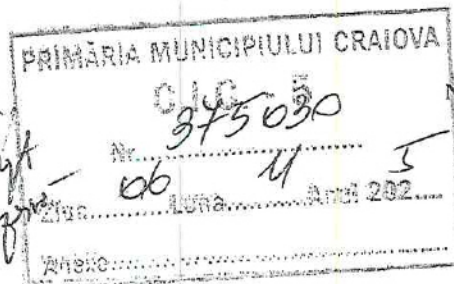 PRIMĂRIA MUNICIPIULUI CRAIOVA
C.I.C. - 5
Nr. 375030
Ziua 06 Luna 11 Anul 2025
Anexe